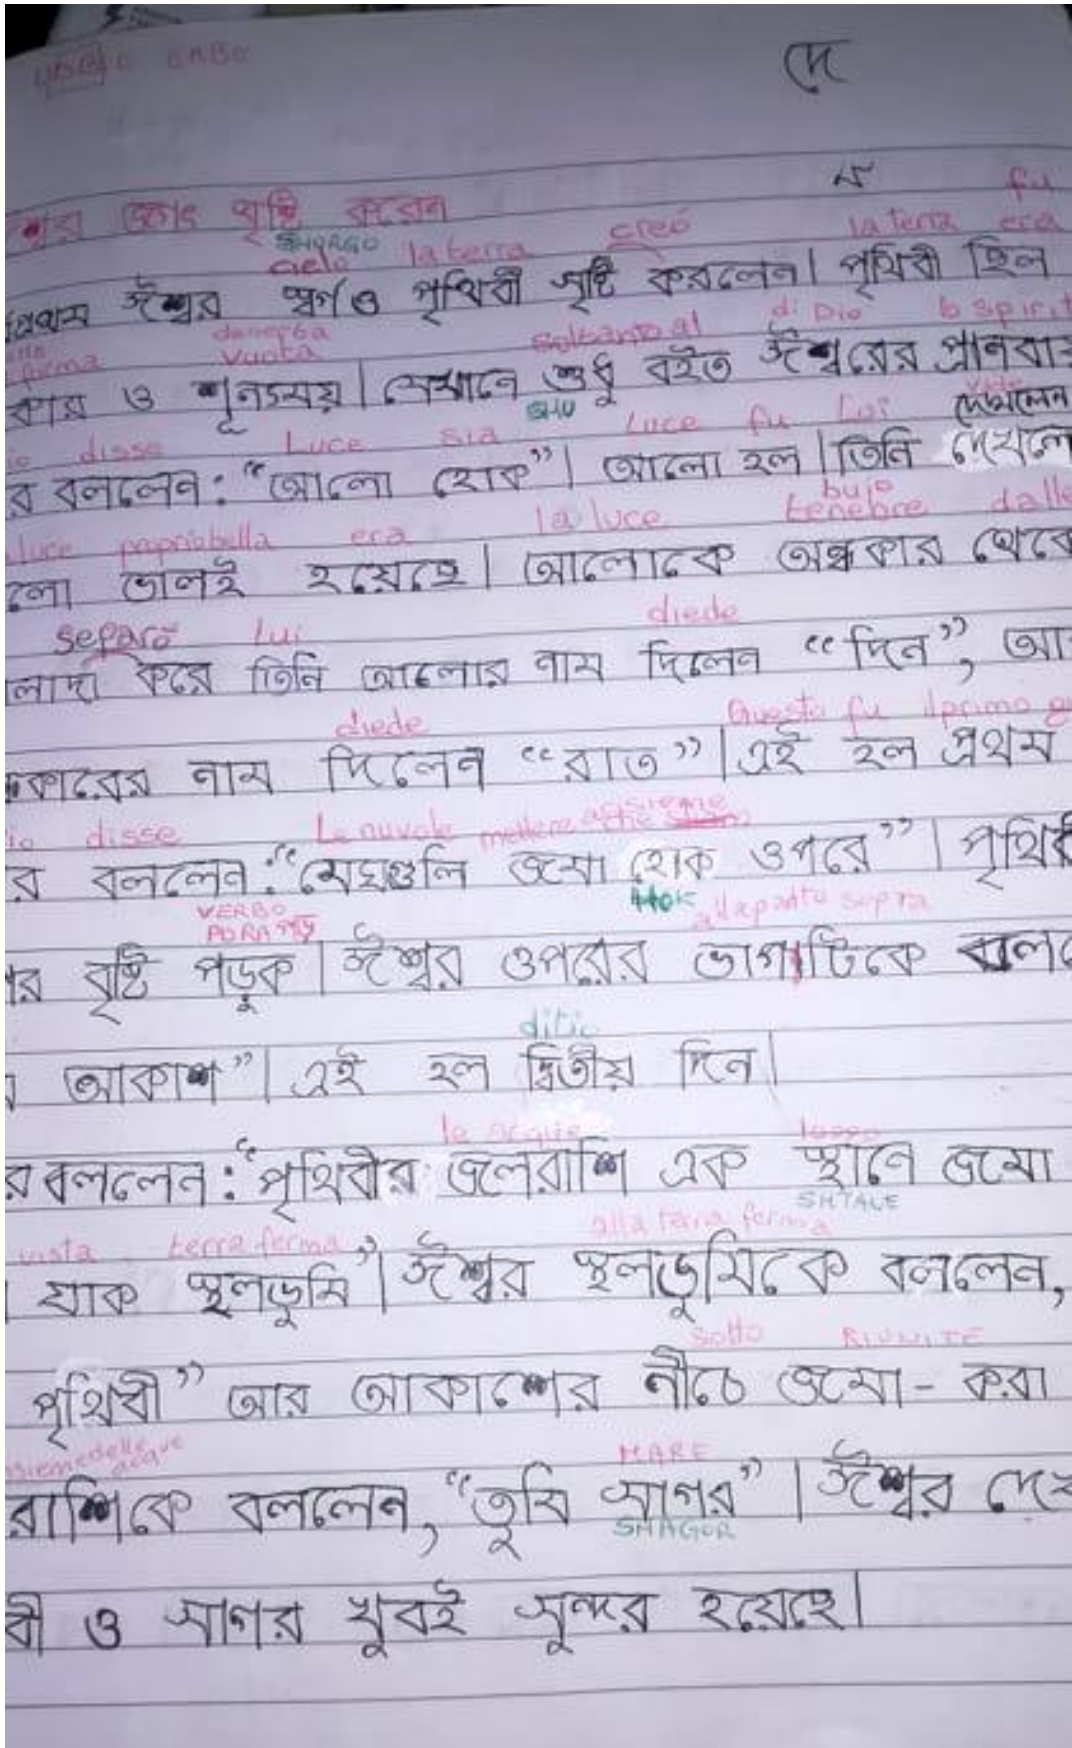 দে
জগৎ সৃষ্টি করেন
fu
SHORGO
cielo la terra creó la terra era
প্রথম ঈশ্বর স্বর্গ ও পৃথিবী সৃষ্টি করলেন। পৃথিবী ছিল
forma vuota soltanto di Dio lo spirit
ও শূন্যময়। সেখানে শুধু বইত ঈশ্বরের
SHU
দেখলেন
disse Luce sia Luce fu Lui vide
র বললেন: “আলো হোক”। আলো হল। তিনি দেখলে
luce propriobella era la luce buio tenebre dalle
লো ভালই হয়েছে। আলোকে অন্ধকার থেকে
separò lui diede
লাদা করে তিনি আলোর নাম দিলেন “দিন”, আ
diede Questo fu il primo g
কারের নাম দিলেন “রাত”। এই হল প্রথম
io disse Le nuvole mettere assieme
র বললেন: “মেঘগুলি জমা হোক ওপরে”। পৃথিবী
HOK
VERBO PORA পড়
alla parte sopra
র বৃষ্টি পড়ুক। ঈশ্বর ওপরের ভাগটিকে বলল
ditio
আকাশ”। এই হল দ্বিতীয় দিন।
le acque luogo
র বললেন: “পৃথিবীর জলরাশি এক স্থানে জমা
SHTALE
vista terra ferma alla terra ferma
যাক স্থলভূমি”। ঈশ্বর স্থলভূমিকে বললেন,
sotto RIUNITE
পৃথিবী” আর আকাশের নীচে জমা - করা
assieme delle acque MARE
রাশিকে বললেন, “তুমি সাগর”। ঈশ্বর দেখ
SHAGOR
বী ও সাগর খুবই সুন্দর হয়েছে।